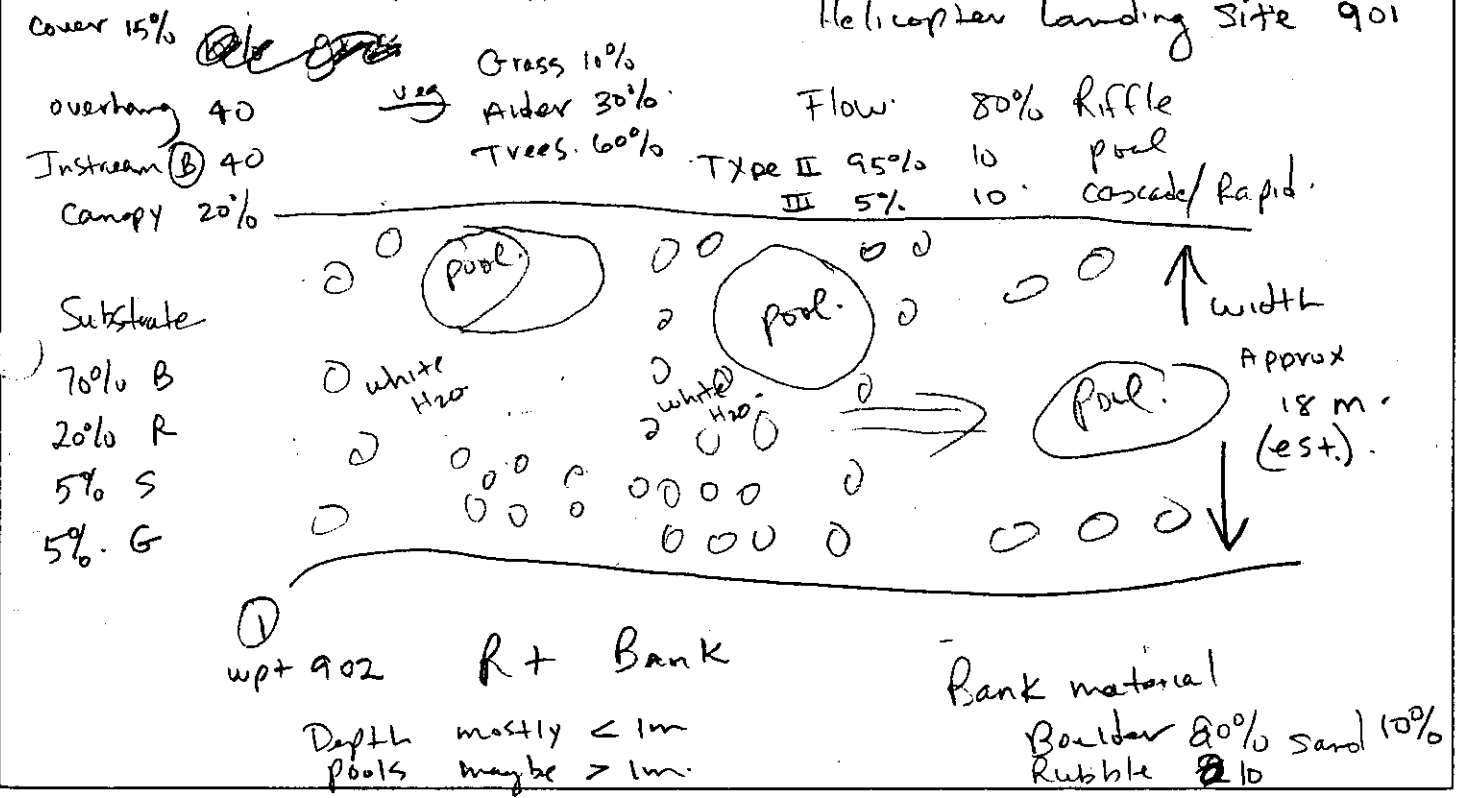 Helicopter Landing Site 901
Cover 15%
overhang 40
Instream (B) 40
Canopy 20%
veg
Grass 10%
Alder 30%
Trees. 60%
Flow. 80% Riffle
10 pool
10. cascade/Rapid.
Type II 95%
III 5%
Substrate
70% B
20% R
5% S
5%. G
pool.
pool.
pool.
white
H2O
white
H2O.
width
Approx
18 m.
(est.).
1
wpt 902
Rt Bank
Depth mostly < 1m
pools maybe > 1m.
Bank material
Boulder 80% sand 10%
Rubble 10